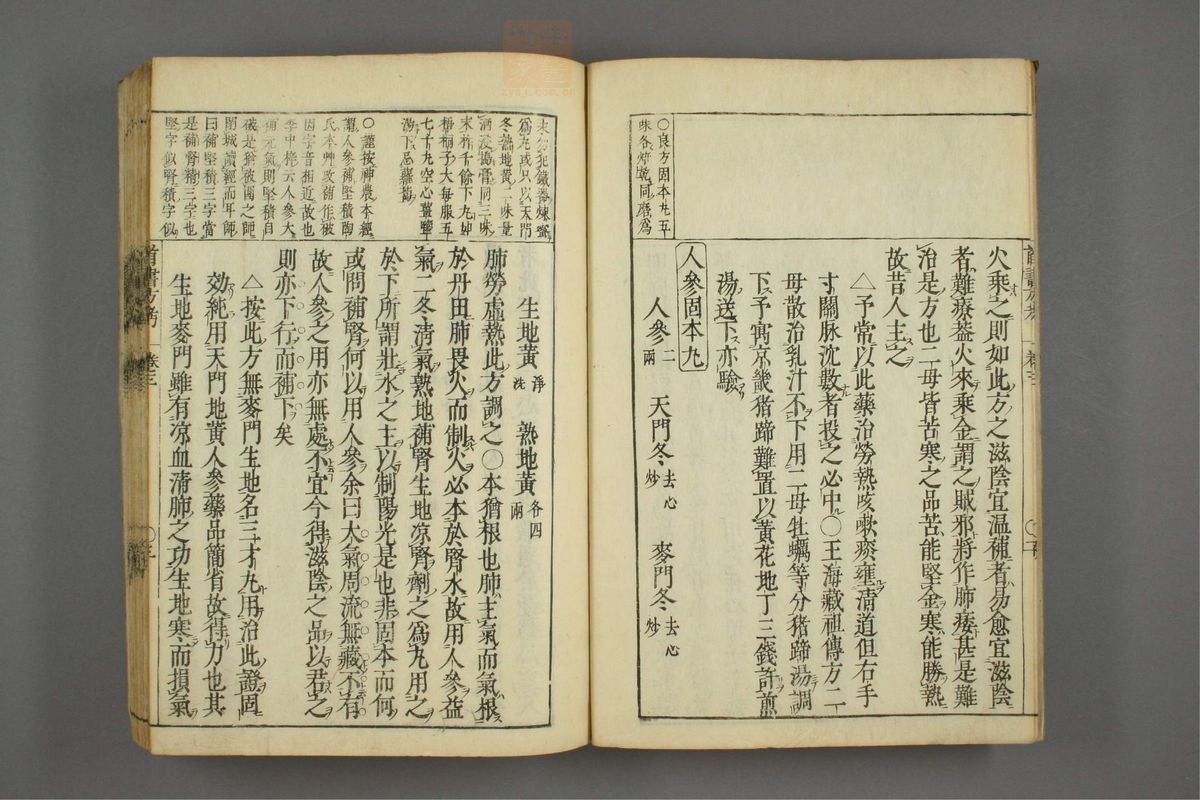 〇良方固本丸五
味各焙乾同磨爲
火乘之則如此方之滋陰宜温補者易愈宜滋陰
者難療蓋火來乘金謂之賊邪將作肺痿甚是難
治是方也二母皆苦寒之品苦能堅金寒能勝熱
故昔人主之
△予常以此藥治勞熱咳嗽痰壅清道但右手
寸關脉沈數者投之必中〇王海藏祖傳方二
母散治乳汁不下用二母牡蠣等分猪蹄湯調
下予寓京畿猪蹄難置以黄花地丁三錢許煎
湯送下亦驗
人參固本丸
人參二兩 天門冬去心炒 麥門冬去心炒
末勿犯鐵器煉蜜
爲丸或只以天門
冬熱地黄二味量
酒浸搗膏同三味
末杵千餘下丸如
梧桐子大每服五
七十丸空心薑鹽
湯下忌蘿蔔
〇謹按神農本經
謂人參補堅積陶
氏本艸改補作破
因字音相近故也
李中梓云人參大
補元氣則堅積自
破是猶被圍之師
閉城讀經而耳師
曰補堅積三字當
是補腎精三字也
堅字似腎積字似
生地黄淨洗 熟地黄各四兩
肺勞虚熱此方調之〇本猶根也肺主氣而氣根
於丹田肺畏火而制火必本於腎水故用人參益
氣二冬清氣熟地補腎生地凉腎劑之爲丸用之
於下所謂壯水之主以制陽光是也非固本而何
或問補腎何以用人參余曰大氣周流無藏不有
故人參之用亦無處不宜今得滋陰之品以君之
則亦下行而補下矣
△按此方無麥門生地名三才丸用治此證固
効純用天門地黄人參藥品簡省故得力也其
生地麥門雖有凉血清肺之功生地寒而損氣
卷三